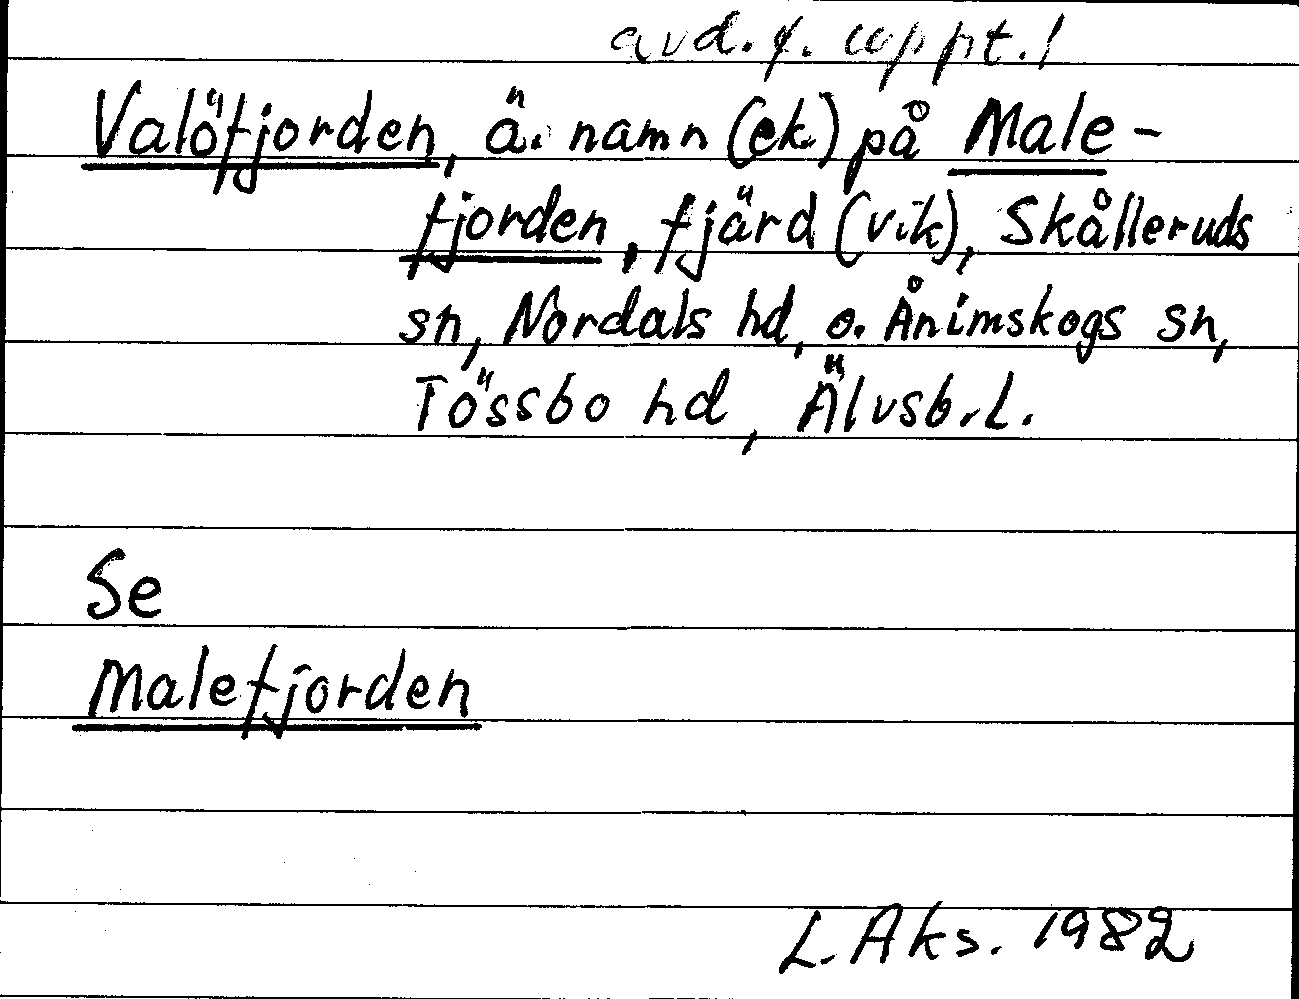 avd. f. uppt. !
Valöfjorden, ä. namn (ek.) på Male-
fjorden, fjärd (vik), Skålleruds
sn, Nordals hd, o. Ånimskogs sn,
Tössbo hd, Älvsb. L.
Se
Malefjorden
L. Aks. 1982